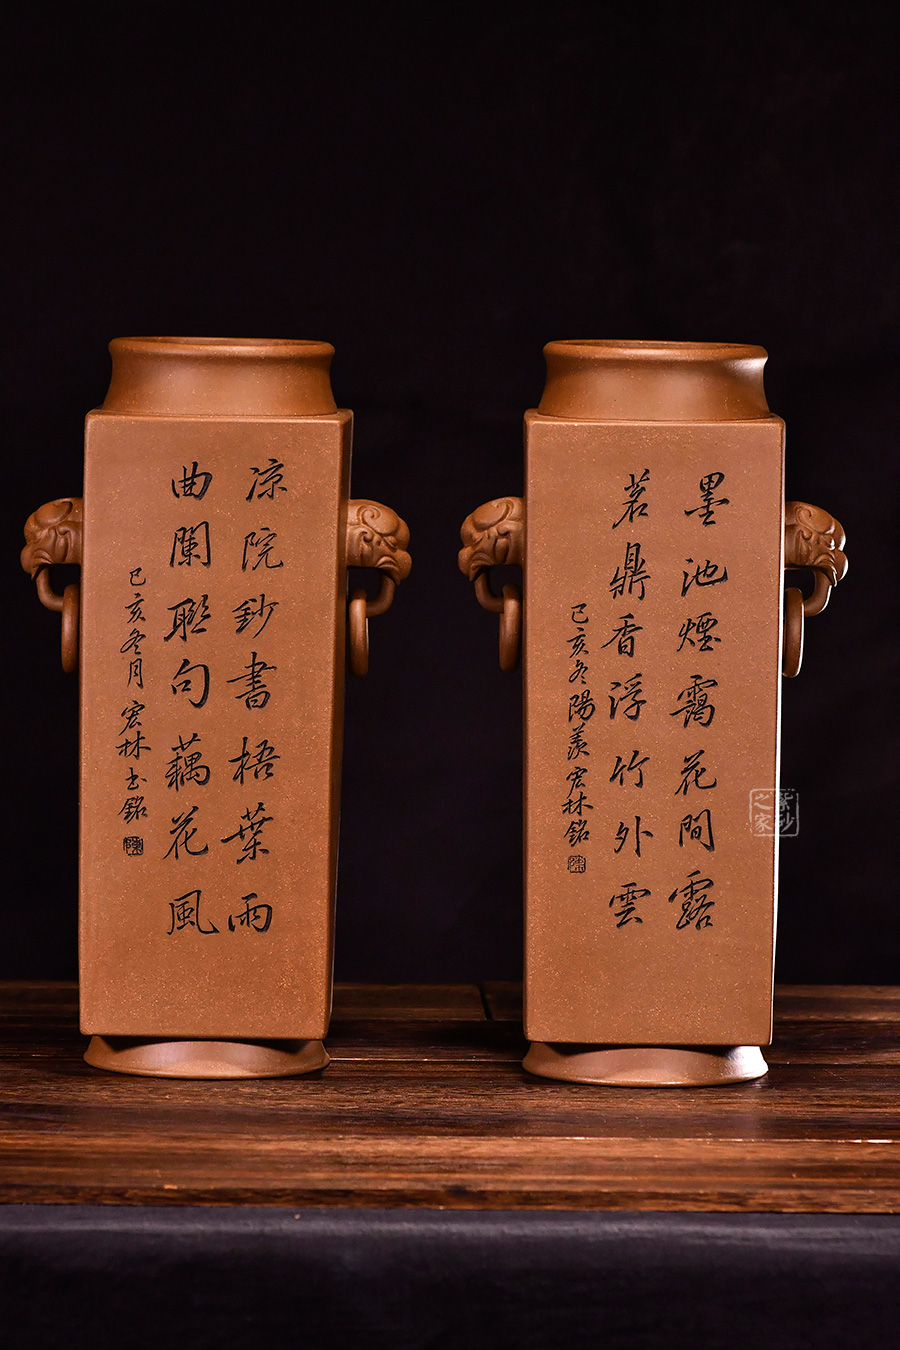 墨池煙靄花間露
茗鼎香浮竹外雲
己亥冬陽羨宏林銘
涼院鈔書梧葉雨
曲闌聯句藕花風
己亥冬月宏林書銘
陳
紫砂
之家